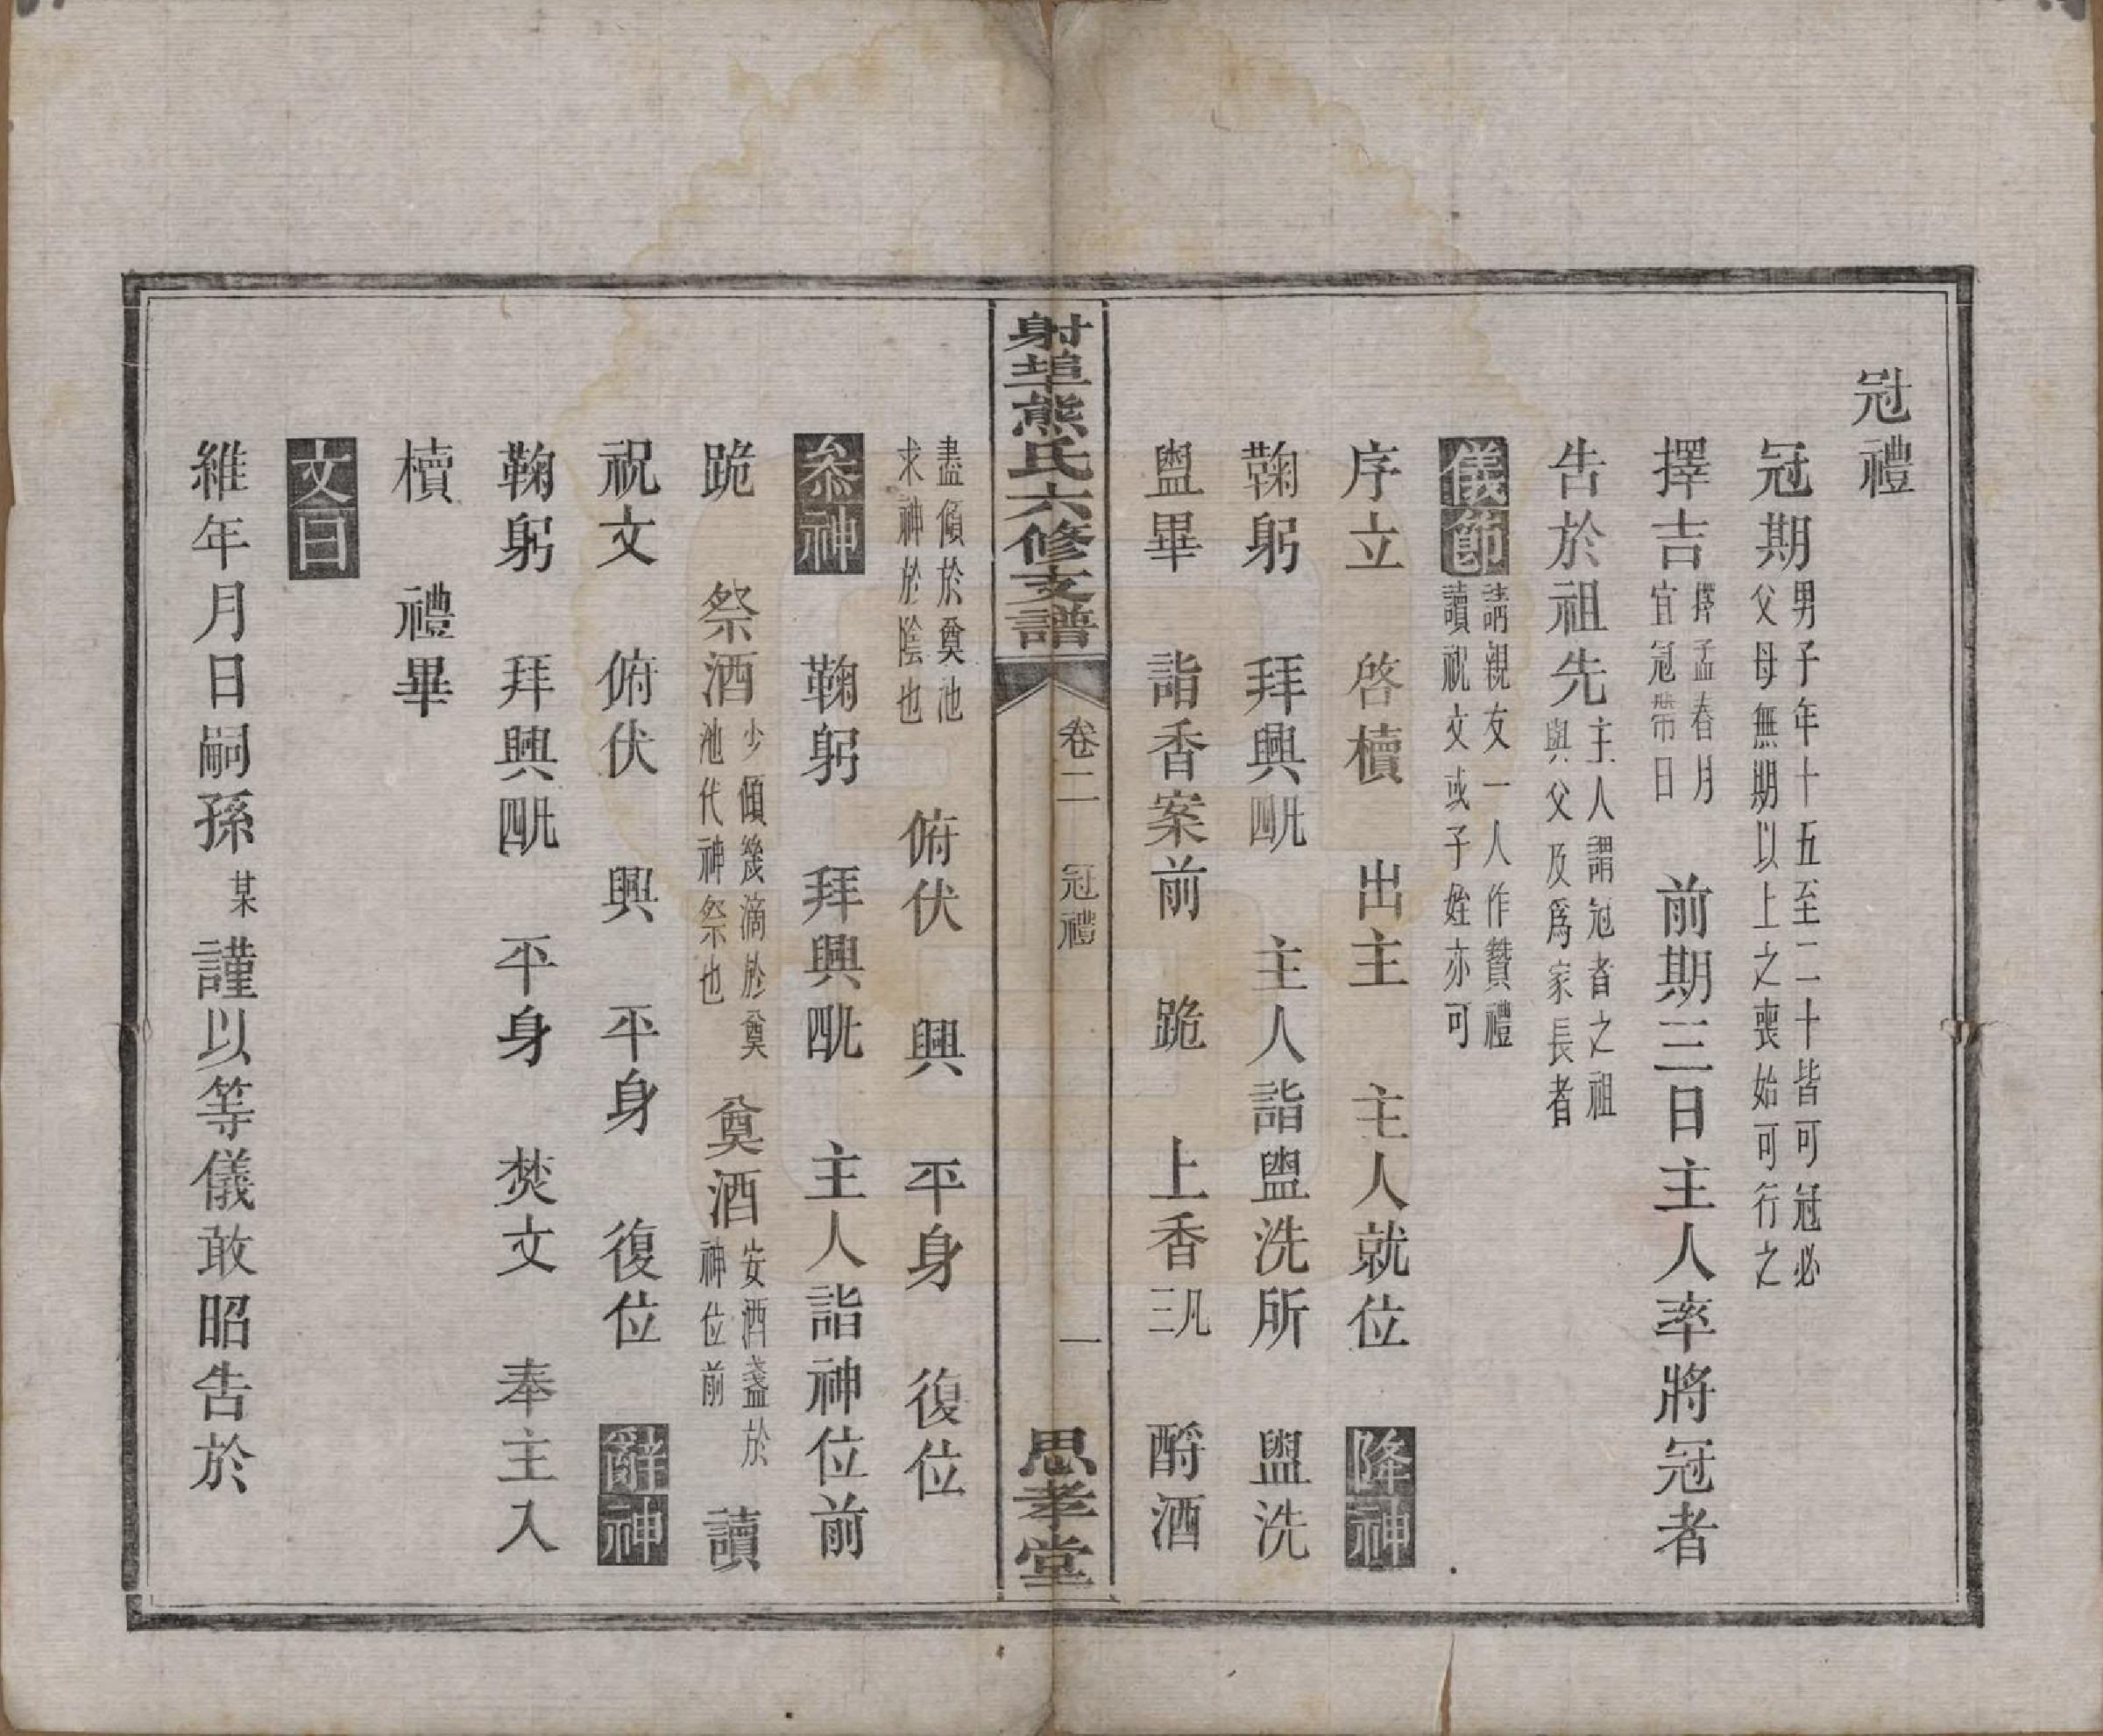 冠禮
冠期男子年十五至二十皆可冠必父母無期以上之喪始可行之
擇吉擇孟春月宜冠帶日 前期三日主人率將冠者
告於祖先主人謂冠者之祖與父及爲家長者
儀節請親友一人作贊禮讀祝文或子姪亦可
序立 啓櫝 出主 主人就位 降神
鞠躬 拜興四 主人詣盥洗所 盥洗
盥畢 詣香案前 跪 上香凡三 酹酒
射埠熊氏六修支譜 卷二 冠禮 一 思孝堂
盡傾於奠池求神於陰也 俯伏 興 平身 復位
叅神 鞠躬 拜興四 主人詣神位前
跪 祭酒少傾幾滴於奠池代神祭也 奠酒安酒盞於神位前 讀
祝文 俯伏 興 平身 復位 辭神
鞠躬 拜興四 平身 焚文 奉主入
櫝 禮畢
文曰
維年月日嗣孫某謹以等儀敢昭告於